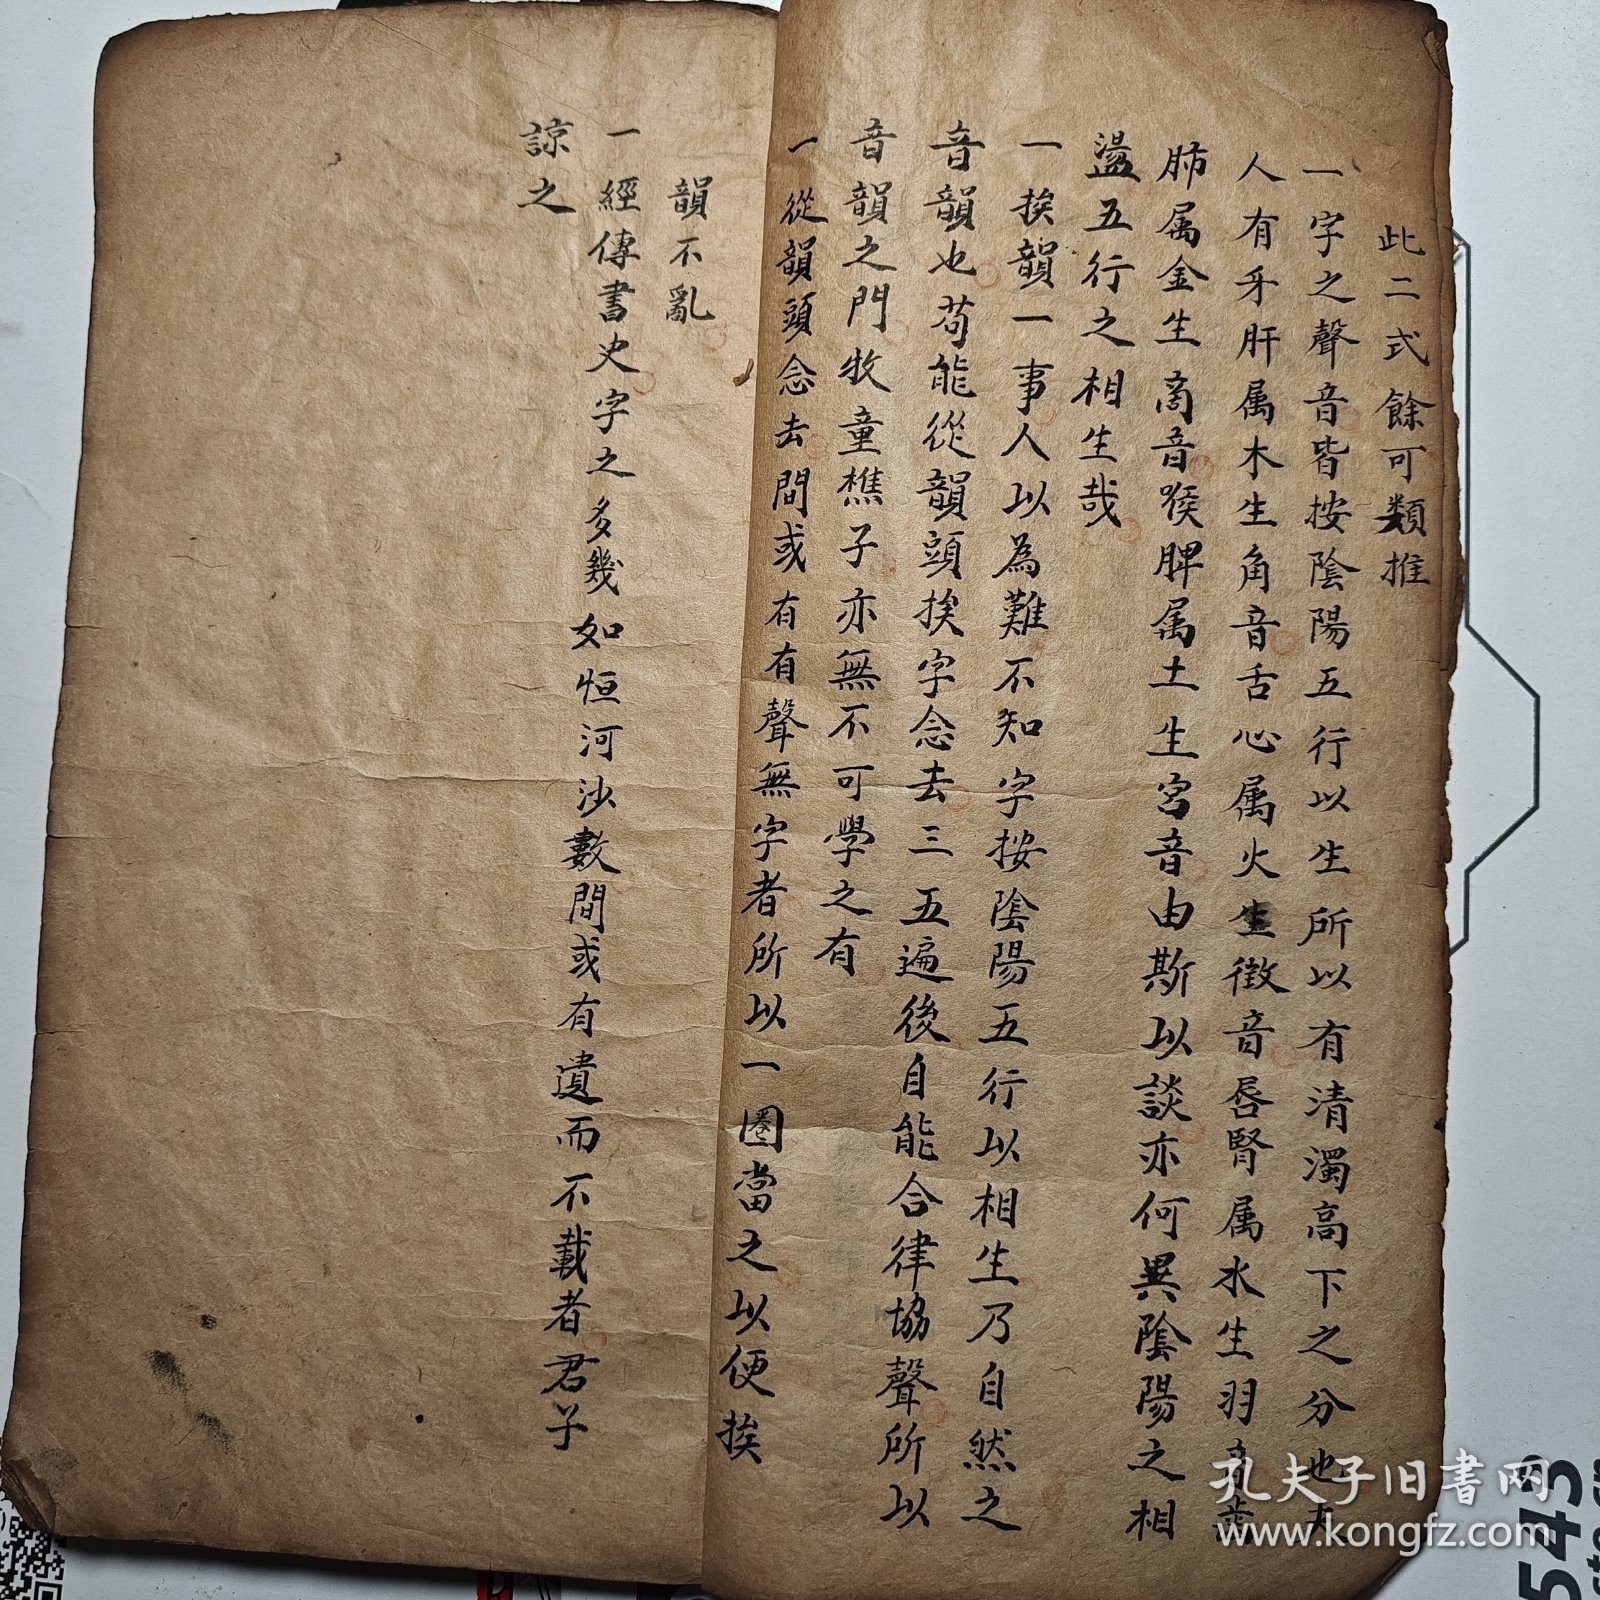 此二式餘可類推
一字之聲音皆按陰陽五行以生所以有清濁高下之分也夫
人有牙肝属木生角音舌心属火生徵音唇腎属水生羽音齒
肺属金生商音喉脾属土生宮音由斯以談亦何異陰陽之相
盪五行之相生哉
一挨韻一事人以為難不知字按陰陽五行以相生乃自然之
音韻也苟能從韻頭挨字念去三五遍後自能合律協聲所以
音韻之門牧童樵子亦無不可學之有
一從韻頭念去間或有有聲無字者所以一圈當之以便挨
韻不亂
一經傳書史字之多幾如恒河沙數間或有遺而不載者君子
諒之
孔夫子旧书网
www.kongfz.com
5543